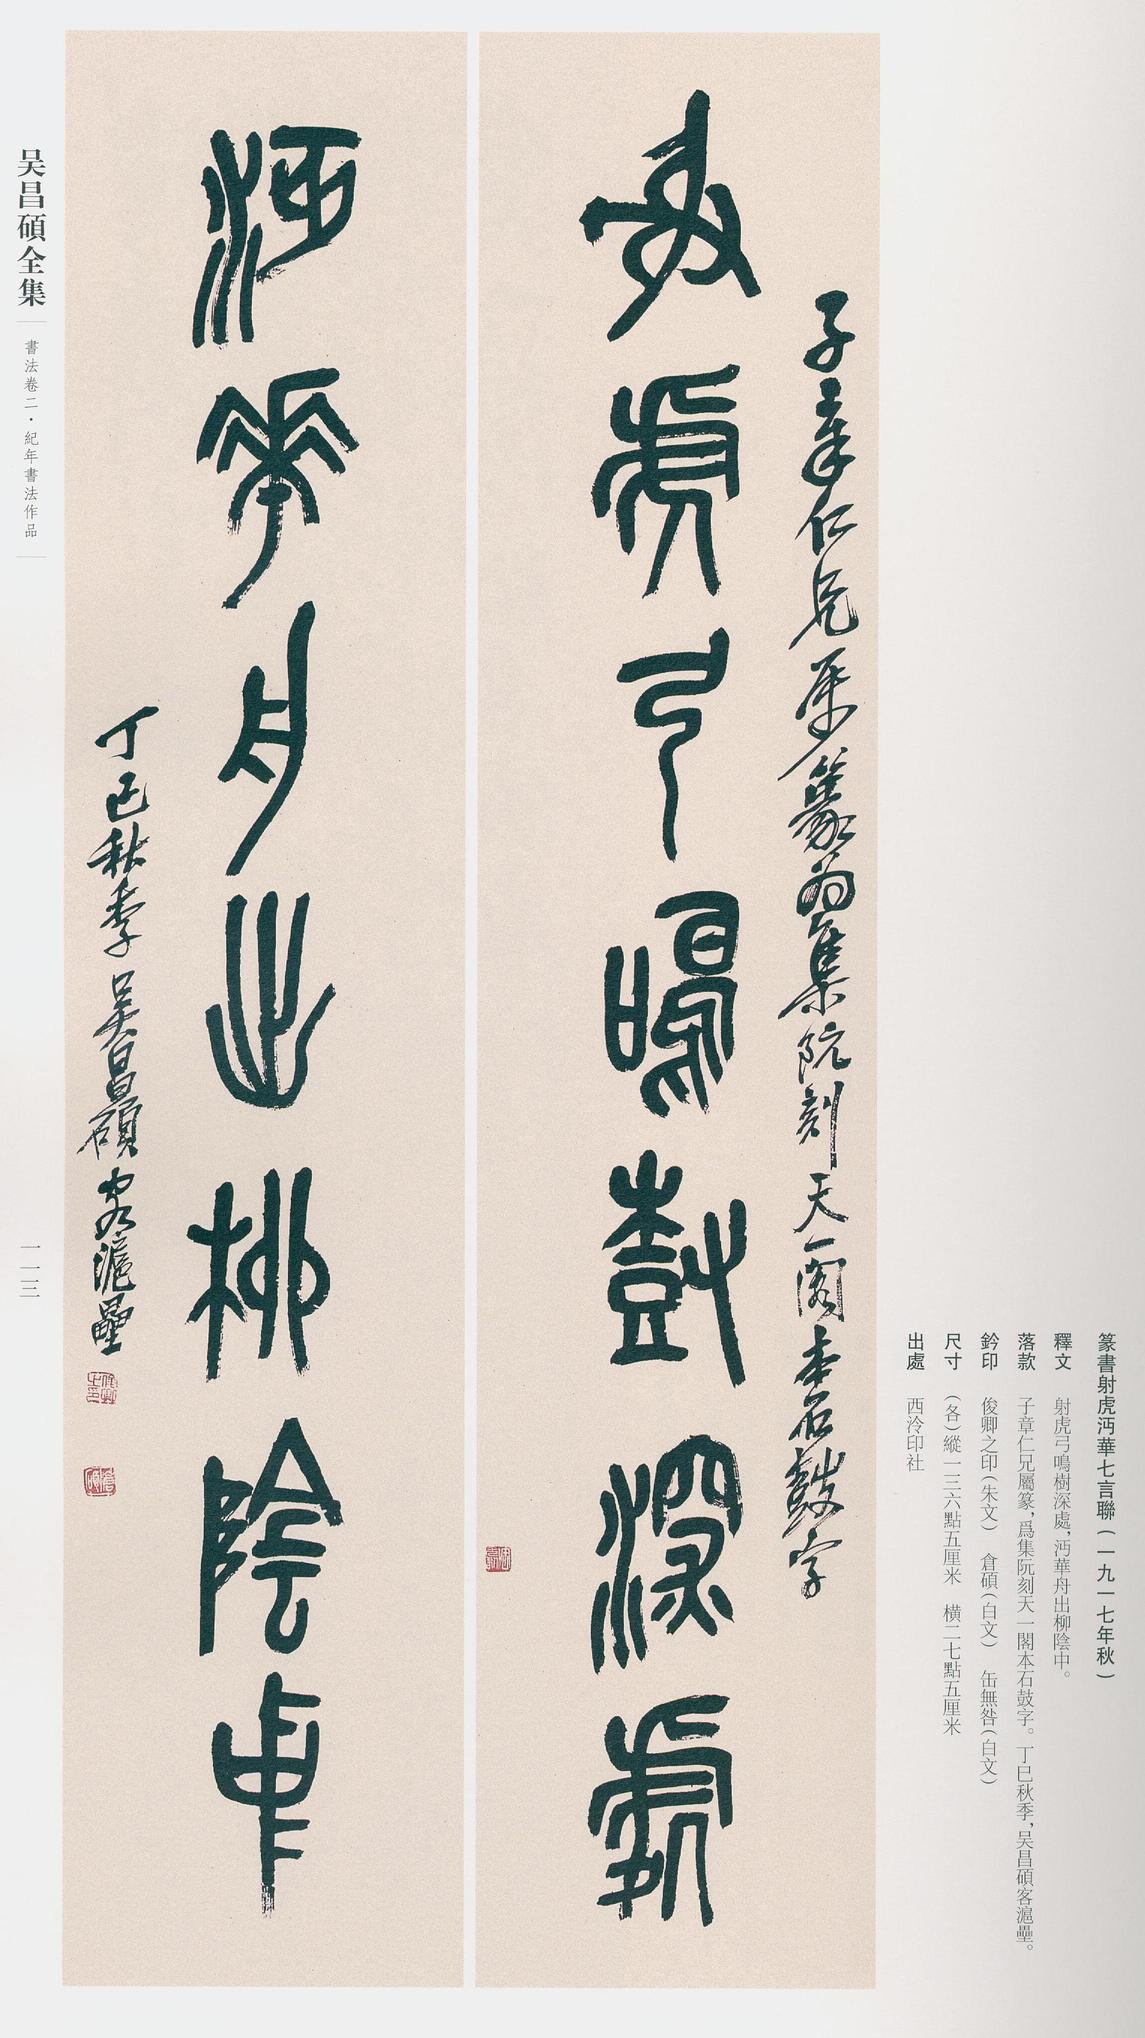 篆書射虎沔華七言聯（一九一七年秋）
釋文 射虎弓鳴樹深處，沔華舟出柳陰中。
落款 子章仁兄屬篆，爲集阮刻天一閣本石鼓字。丁巳秋季，吴昌碩客滬壘。
鈐印 俊卿之印（朱文） 倉碩（白文） 缶無咎（白文）
尺寸 （各）縱一三六點五厘米 橫二七點五厘米
出處 西泠印社
子章仁兄屬篆爲集阮刻天一閣本石鼓字
射虎弓鳴樹深處
沔華舟出柳陰中
丁巳秋季吴昌碩客滬壘
吴昌碩全集
書法卷二·紀年書法作品
一一三